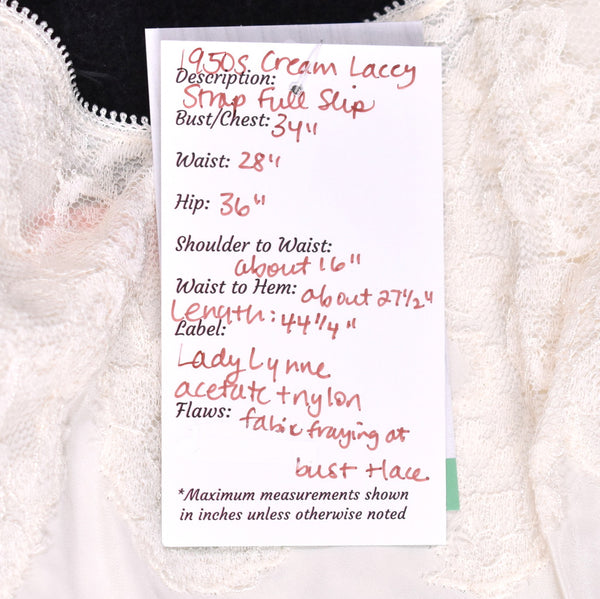 1950s Cream Laccy
Description:
Strap Full Slip
Bust/Chest: 34"
Waist: 28"
Hip: 36"
Shoulder to Waist:
about 16"
Waist to Hem: about 27 1/2"
Length: 44 1/4"
Label:
Lady Lynne
acetate + nylon
Flaws: fabic fraying at
bust + lace
*Maximum measurements shown
in inches unless otherwise noted